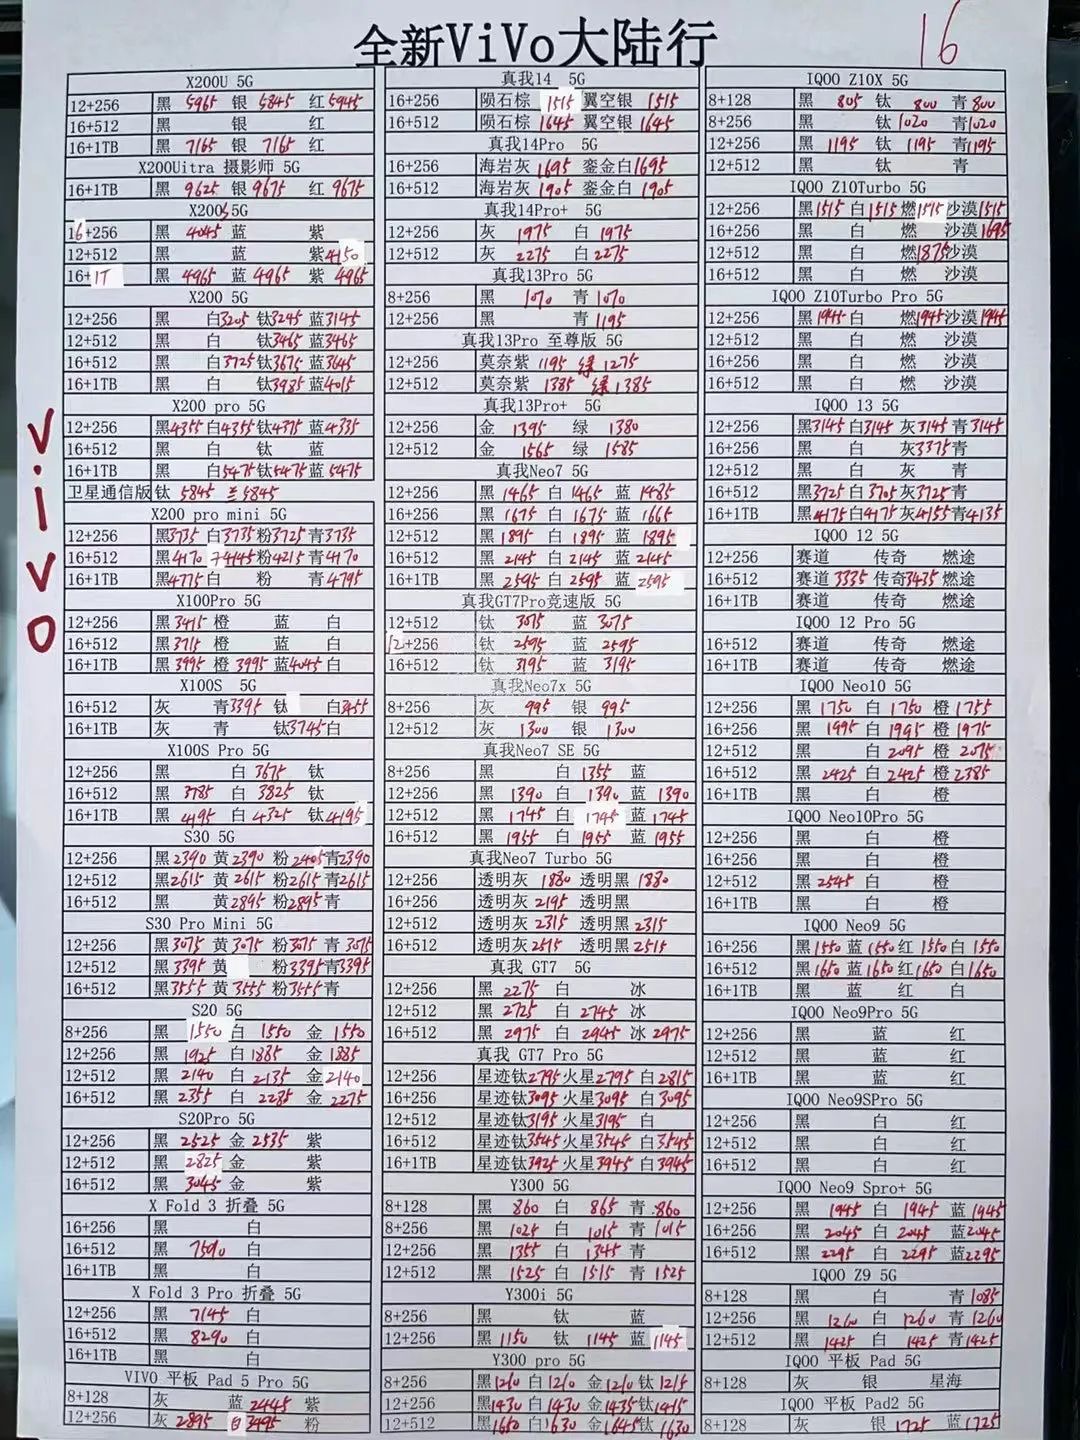 全新ViVo大陆行
16
ViVO
X200U 5G
12+256 黑 5965 银 5845 红 5945
16+512 黑 银 红
16+1TB 黑 7165 银 7165 红
X200Uitra 摄影师 5G
16+1TB 黑 9625 银 9675 红 9675
X200S 5G
16+256 黑 4045 蓝 紫
12+512 黑 蓝 紫4150
16+1T 黑 4965 蓝 4965 紫 4965
X200 5G
12+256 黑 白3205 钛3245 蓝3145
12+512 黑 白 钛3465 蓝3465
16+512 黑 白3725 钛3675 蓝3645
16+1TB 黑 白 钛3985 蓝4015
X200 pro 5G
12+256 黑4355 白4355 钛4375 蓝4335
16+512 黑 白 钛 蓝
16+1TB 黑 白5475 钛5475 蓝5475
卫星通信版 钛 5845 兰5845
X200 pro mini 5G
12+256 黑3735 白3735 粉3725 青3735
16+512 黑4170 4145 粉4215 青4170
16+1TB 黑4775 白 粉 青4795
X100Pro 5G
12+256 黑3415 橙 蓝 白
16+512 黑3715 橙 蓝 白
16+1TB 黑3995 橙 3995 蓝4045 白
X100S 5G
16+512 灰 青3395 钛 白3455
16+1TB 灰 青 钛3745 白
X100S Pro 5G
12+256 黑 白 3675 钛
16+512 黑 3785 白 3825 钛
16+1TB 黑 4195 白 4325 钛4195
S30 5G
12+256 黑2390 黄2390 粉2405 青2390
12+512 黑2615 黄2615 粉2615 青2615
16+512 黑 黄2895 粉2895 青
S30 Pro Mini 5G
12+256 黑3075 黄3075 粉3075 青3075
12+512 黑3395 黄 粉3395 青3395
16+512 黑3555 黄3555 粉3555 青
S20 5G
8+256 黑 1550 白 1550 金 1550
12+256 黑 1925 白 1885 金 1885
12+512 黑 2140 白 2135 金 2140
16+512 黑 2355 白 2285 金 2275
S20Pro 5G
12+256 黑 2525 金 2535 紫
12+512 黑 2825 金 紫
16+512 黑 3045 金 紫
X Fold 3 折叠 5G
16+256 黑 白
16+512 黑 7590 白
16+1TB 黑 白
X Fold 3 Pro 折叠 5G
12+256 黑 7145 白
16+512 黑 8290 白
16+1TB 黑 白
VIVO 平板 Pad 5 Pro 5G
8+128 灰 蓝 2445 紫
12+256 灰 2895 白 3495 粉
真我14 5G
16+256 陨石棕 1515 翼空银 1515
16+512 陨石棕 1645 翼空银 1645
真我14Pro 5G
16+256 海岩灰 1695 銮金白1695
16+512 海岩灰 1905 銮金白 1905
真我14Pro+ 5G
12+256 灰 1975 白 1975
12+512 灰 2275 白 2275
真我13Pro 5G
8+256 黑 1070 青 1070
12+256 黑 青 1195
真我13Pro 至尊版 5G
12+256 莫奈紫 1195 绿 1275
12+512 莫奈紫 1385 绿 1385
真我13Pro+ 5G
12+256 金 1395 绿 1380
12+512 金 1565 绿 1585
真我Neo7 5G
12+256 黑 1465 白 1465 蓝 1485
16+256 黑 1675 白 1675 蓝 1665
12+512 黑 1895 白 1895 蓝 1895
16+512 黑 2145 白 2145 蓝 2145
16+1TB 黑 2595 白 2595 蓝 2595
真我GT7Pro竞速版 5G
12+512 钛 3075 蓝 3075
12+256 钛 2595 蓝 2595
16+512 钛 3195 蓝 3195
真我Neo7x 5G
8+256 灰 995 银 995
12+512 灰 1300 银 1300
真我Neo7 SE 5G
8+256 黑 白 1355 蓝
12+256 黑 1390 白 1390 蓝 1390
12+512 黑 1745 白 1745 蓝 1745
16+512 黑 1955 白 1955 蓝 1955
真我Neo7 Turbo 5G
12+256 透明灰 1880 透明黑 1880
16+256 透明灰 2195 透明黑
12+512 透明灰 2315 透明黑 2315
16+512 透明灰 2515 透明黑 2515
真我 GT7 5G
12+256 黑 2275 白 冰
12+512 黑 2725 白 2745 冰
16+512 黑 2975 白 2945 冰 2975
真我 GT7 Pro 5G
12+256 星迹钛2795 火星2795 白2815
16+256 星迹钛3095 火星3095 白3095
12+512 星迹钛3195 火星3195 白
16+512 星迹钛3545 火星3545 白3545
16+1TB 星迹钛3925 火星3945 白3945
Y300 5G
8+128 黑 860 白 865 青 860
8+256 黑 1025 白 1015 青 1015
12+256 黑 1355 白 1345 青
12+512 黑 1525 白 1515 青 1525
Y300i 5G
8+256 黑 钛 蓝
12+256 黑1150 钛 1145 蓝1145
Y300 pro 5G
8+256 黑1210 白1210 金1210 钛1215
12+256 黑1430 白1430 金1435 钛1415
12+512 黑1650 白1630 金1645 钛1630
IQOO Z10X 5G
8+128 黑 805 钛 800 青 800
8+256 黑 钛1020 青1020
12+256 黑 1195 钛 1195 青1195
12+512 黑 钛 青
IQOO Z10Turbo 5G
12+256 黑1515 白1515 燃1515 沙漠1515
16+256 黑 白 燃 沙漠1695
12+512 黑 白 燃1875 沙漠
16+512 黑 白 燃 沙漠
IQOO Z10Turbo Pro 5G
12+256 黑1945 白 燃1945 沙漠1945
12+512 黑 白 燃 沙漠
16+256 黑 白 燃 沙漠
16+512 黑 白 燃 沙漠
IQOO 13 5G
12+256 黑3145 白3145 灰3145 青3145
16+256 黑 白 灰3375 青
12+512 黑 白 灰 青
16+512 黑3725 白3705 灰3725 青
16+1TB 黑4175 白4175 灰4155 青4135
IQOO 12 5G
12+256 赛道 传奇 燃途
16+512 赛道 3335 传奇3435 燃途
16+1TB 赛道 传奇 燃途
IQOO 12 Pro 5G
16+512 赛道 传奇 燃途
16+1TB 赛道 传奇 燃途
IQOO Neo10 5G
12+256 黑 1750 白 1750 橙 1755
16+256 黑 1995 白 1995 橙 1975
12+512 黑 白 2095 橙 2075
16+512 黑 2425 白 2425 橙 2385
16+1TB 黑 白 橙
IQOO Neo10Pro 5G
12+256 黑 白 橙
16+256 黑 白 橙
12+512 黑 2545 白 橙
16+1TB 黑 白 橙
IQOO Neo9 5G
16+256 黑1550 蓝1550 红1550 白1550
16+512 黑1650 蓝1650 红1650 白1650
16+1TB 黑 蓝 红 白
IQOO Neo9Pro 5G
12+256 黑 蓝 红
12+512 黑 蓝 红
16+1TB 黑 蓝 红
IQOO Neo9SPro 5G
12+256 黑 白 红
12+512 黑 白 红
16+512 黑 白 红
IQOO Neo9 Spro+ 5G
12+256 黑 1945 白 1945 蓝1945
16+256 黑 2045 白 2045 蓝2045
16+512 黑 2295 白 2295 蓝2295
IQOO Z9 5G
8+128 黑 白 青1085
12+256 黑 1260 白 1260 青1260
12+512 黑 1425 白 1425 青1425
IQOO 平板 Pad 5G
8+128 灰 银 星海
IQOO 平板 Pad2 5G
8+128 灰 银 1725 蓝1725